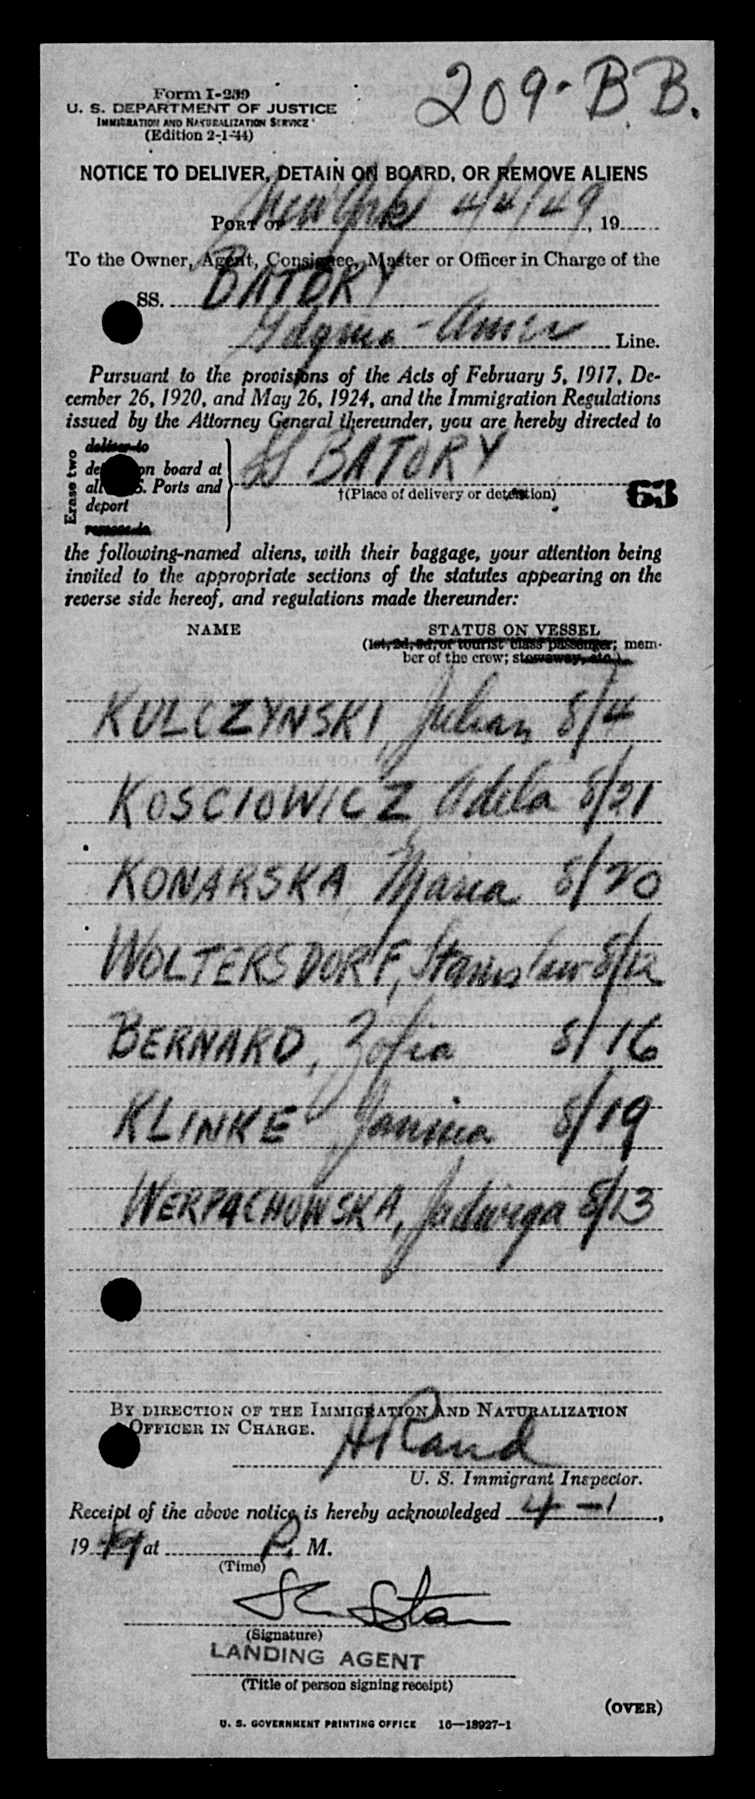 209-B.B.
Form I-259
U. S. DEPARTMENT OF JUSTICE
IMMIGRATION AND NATURALIZATION SERVICE
(Edition 2-1-44)
NOTICE TO DELIVER, DETAIN ON BOARD, OR REMOVE ALIENS
PORT OF New York 4/4/49, 19
To the Owner, Agent, Consignee, Master or Officer in Charge of the
SS. BATORY
Gdynia-Amer Line.
Pursuant to the provisions of the Acts of February 5, 1917, De-
cember 26, 1920, and May 26, 1924, and the Immigration Regulations
issued by the Attorney General thereunder, you are hereby directed to
Erase two
deliver to
detain on board at
all U. S. Ports and
deport
remove to
SS BATORY
†(Place of delivery or detention)
63
the following-named aliens, with their baggage, your attention being
invited to the appropriate sections of the statutes appearing on the
reverse side hereof, and regulations made thereunder:
NAME STATUS ON VESSEL
(1st, 2d, 3d, or tourist class passenger; mem-
ber of the crew; stowaway, etc.)
KULCZYNSKI, Julian 8/4
KOSCIOWICZ Adela 8/21
KONARSKA Maria 8/20
WOLTERSDORF, Stanislaw 8/12
BERNARD, Zofia 8/16
KLINKE Janina 8/19
WERPACHOWSKA, Jadwiga 8/13
BY DIRECTION OF THE IMMIGRATION AND NATURALIZATION
OFFICER IN CHARGE.
U. S. Immigrant Inspector.
Receipt of the above notice is hereby acknowledged 4-1,
1949 at P. M.
(Time)
(Signature)
LANDING AGENT
(Title of person signing receipt)
(OVER)
U. S. GOVERNMENT PRINTING OFFICE 16—18927-1